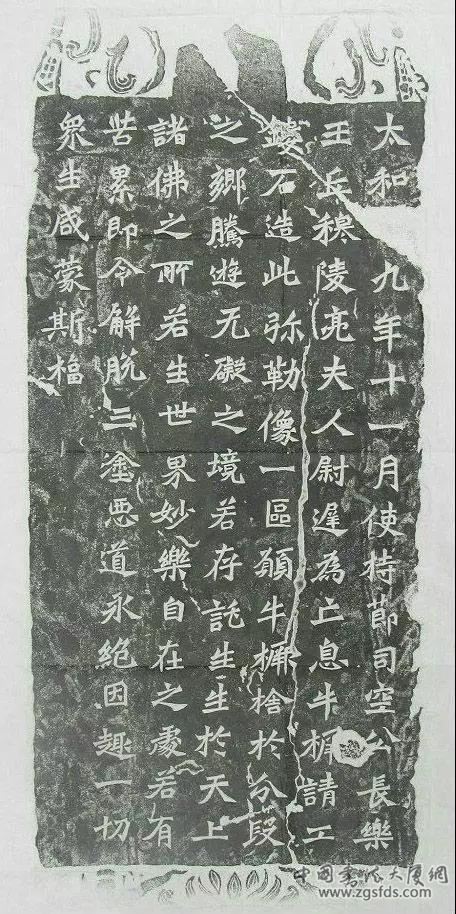 太和 九年十一月使持節司空公長樂
王丘穆陵亮夫人尉遲為亡息牛橛請工
鏤石造此弥勒像一區願牛橛捨於分段
之鄉騰遊无礙之境若存託生生於天上
諸佛之所若生世界妙樂自在之處若有
苦累即令解脫三塗惡道永絕因趣一切
衆生咸蒙斯福
中國書法大廈網
www.zgsfds.com